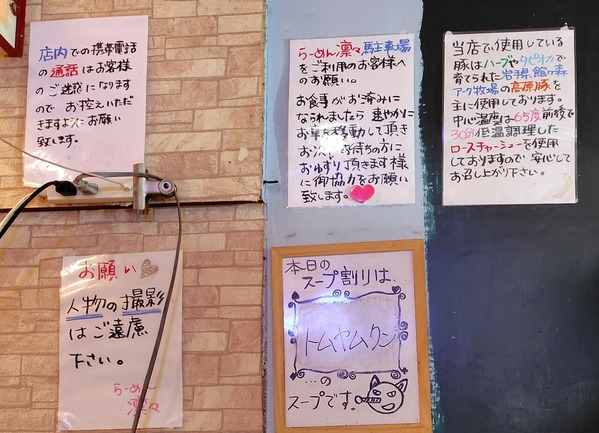 店内での携帯電話
の通話はお客様
のご迷惑になります
ので お控えいただ
きますようにお願い
致します。
らーめん凛々駐車場
をご利用のお客様へ
のお願い。
お食事がお済みに
なられましたら 速やかに
お車を移動して頂き
お次のお待ちの方に
おゆずり頂きます様
に御協力をお願い
致します。
当店で使用している
豚はハーブやタピオカで
育てられた岩手県館ヶ森
アーク牧場の高原豚を
主に使用しております。
中心温度は65度前後で
30分低温調理した
ロースチャーシューを使用
しておりますので 安心して
お召し上がり下さい。
お願い
人物の撮影
はご遠慮
下さい。
らーめん
凛々
本日の
スープ割りは、
トムヤムクン
…の
スープです。